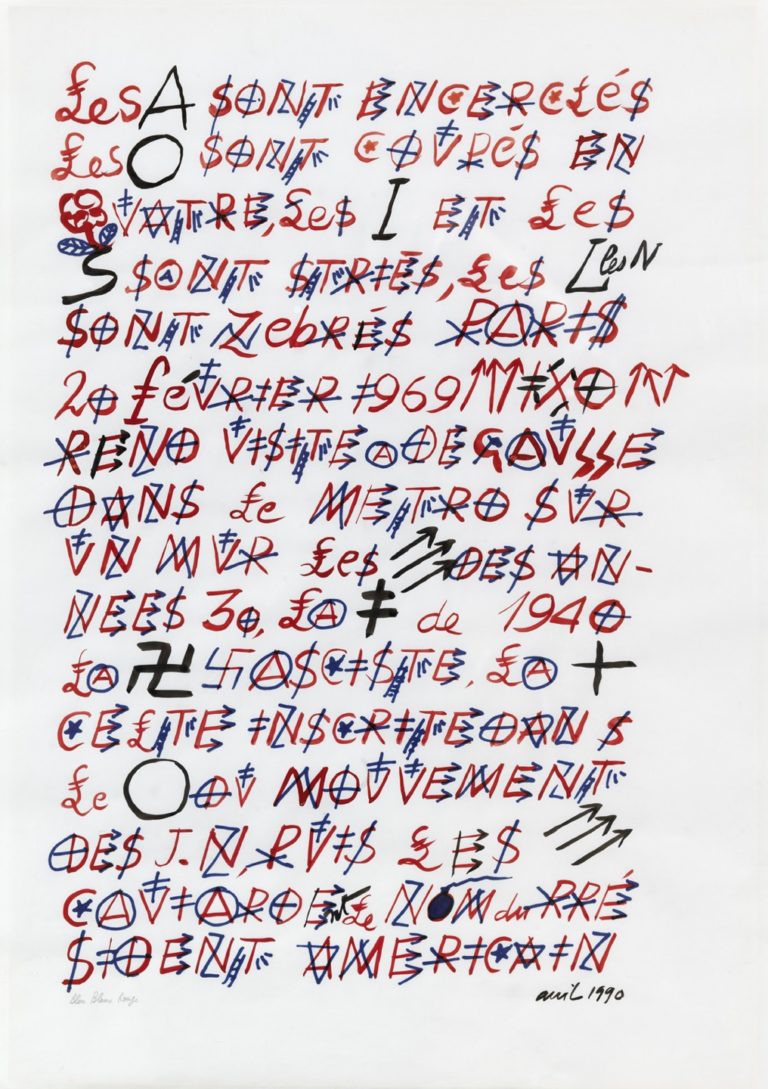 Les A SONT ENCERCLéS
Les O SONT COUPéS EN
QUATRE, Les I ET Les
S SONT STRIÉS, Les L les N
SONT ZebRÉS PARIS
20 féVRIER 1969 ↑↑↑IXO↑↑↑
REND VISITE A DE GAUSSE
DANS Le METRO SUR
UN MUR Les ↗↗↗ DES AN-
NEES 30, LA ‡ de 1940
LA 卍 FASCISTE, LA +
CELTE INSCRITE DANS
Le O DU MOUVEMENT
DES J.N, PUIS LES ↗↗↗
CAVIARDENT Le NOM du PRÉ
SIDENT AMERICAIN
Bleu Blanc Rouge
avril 1990